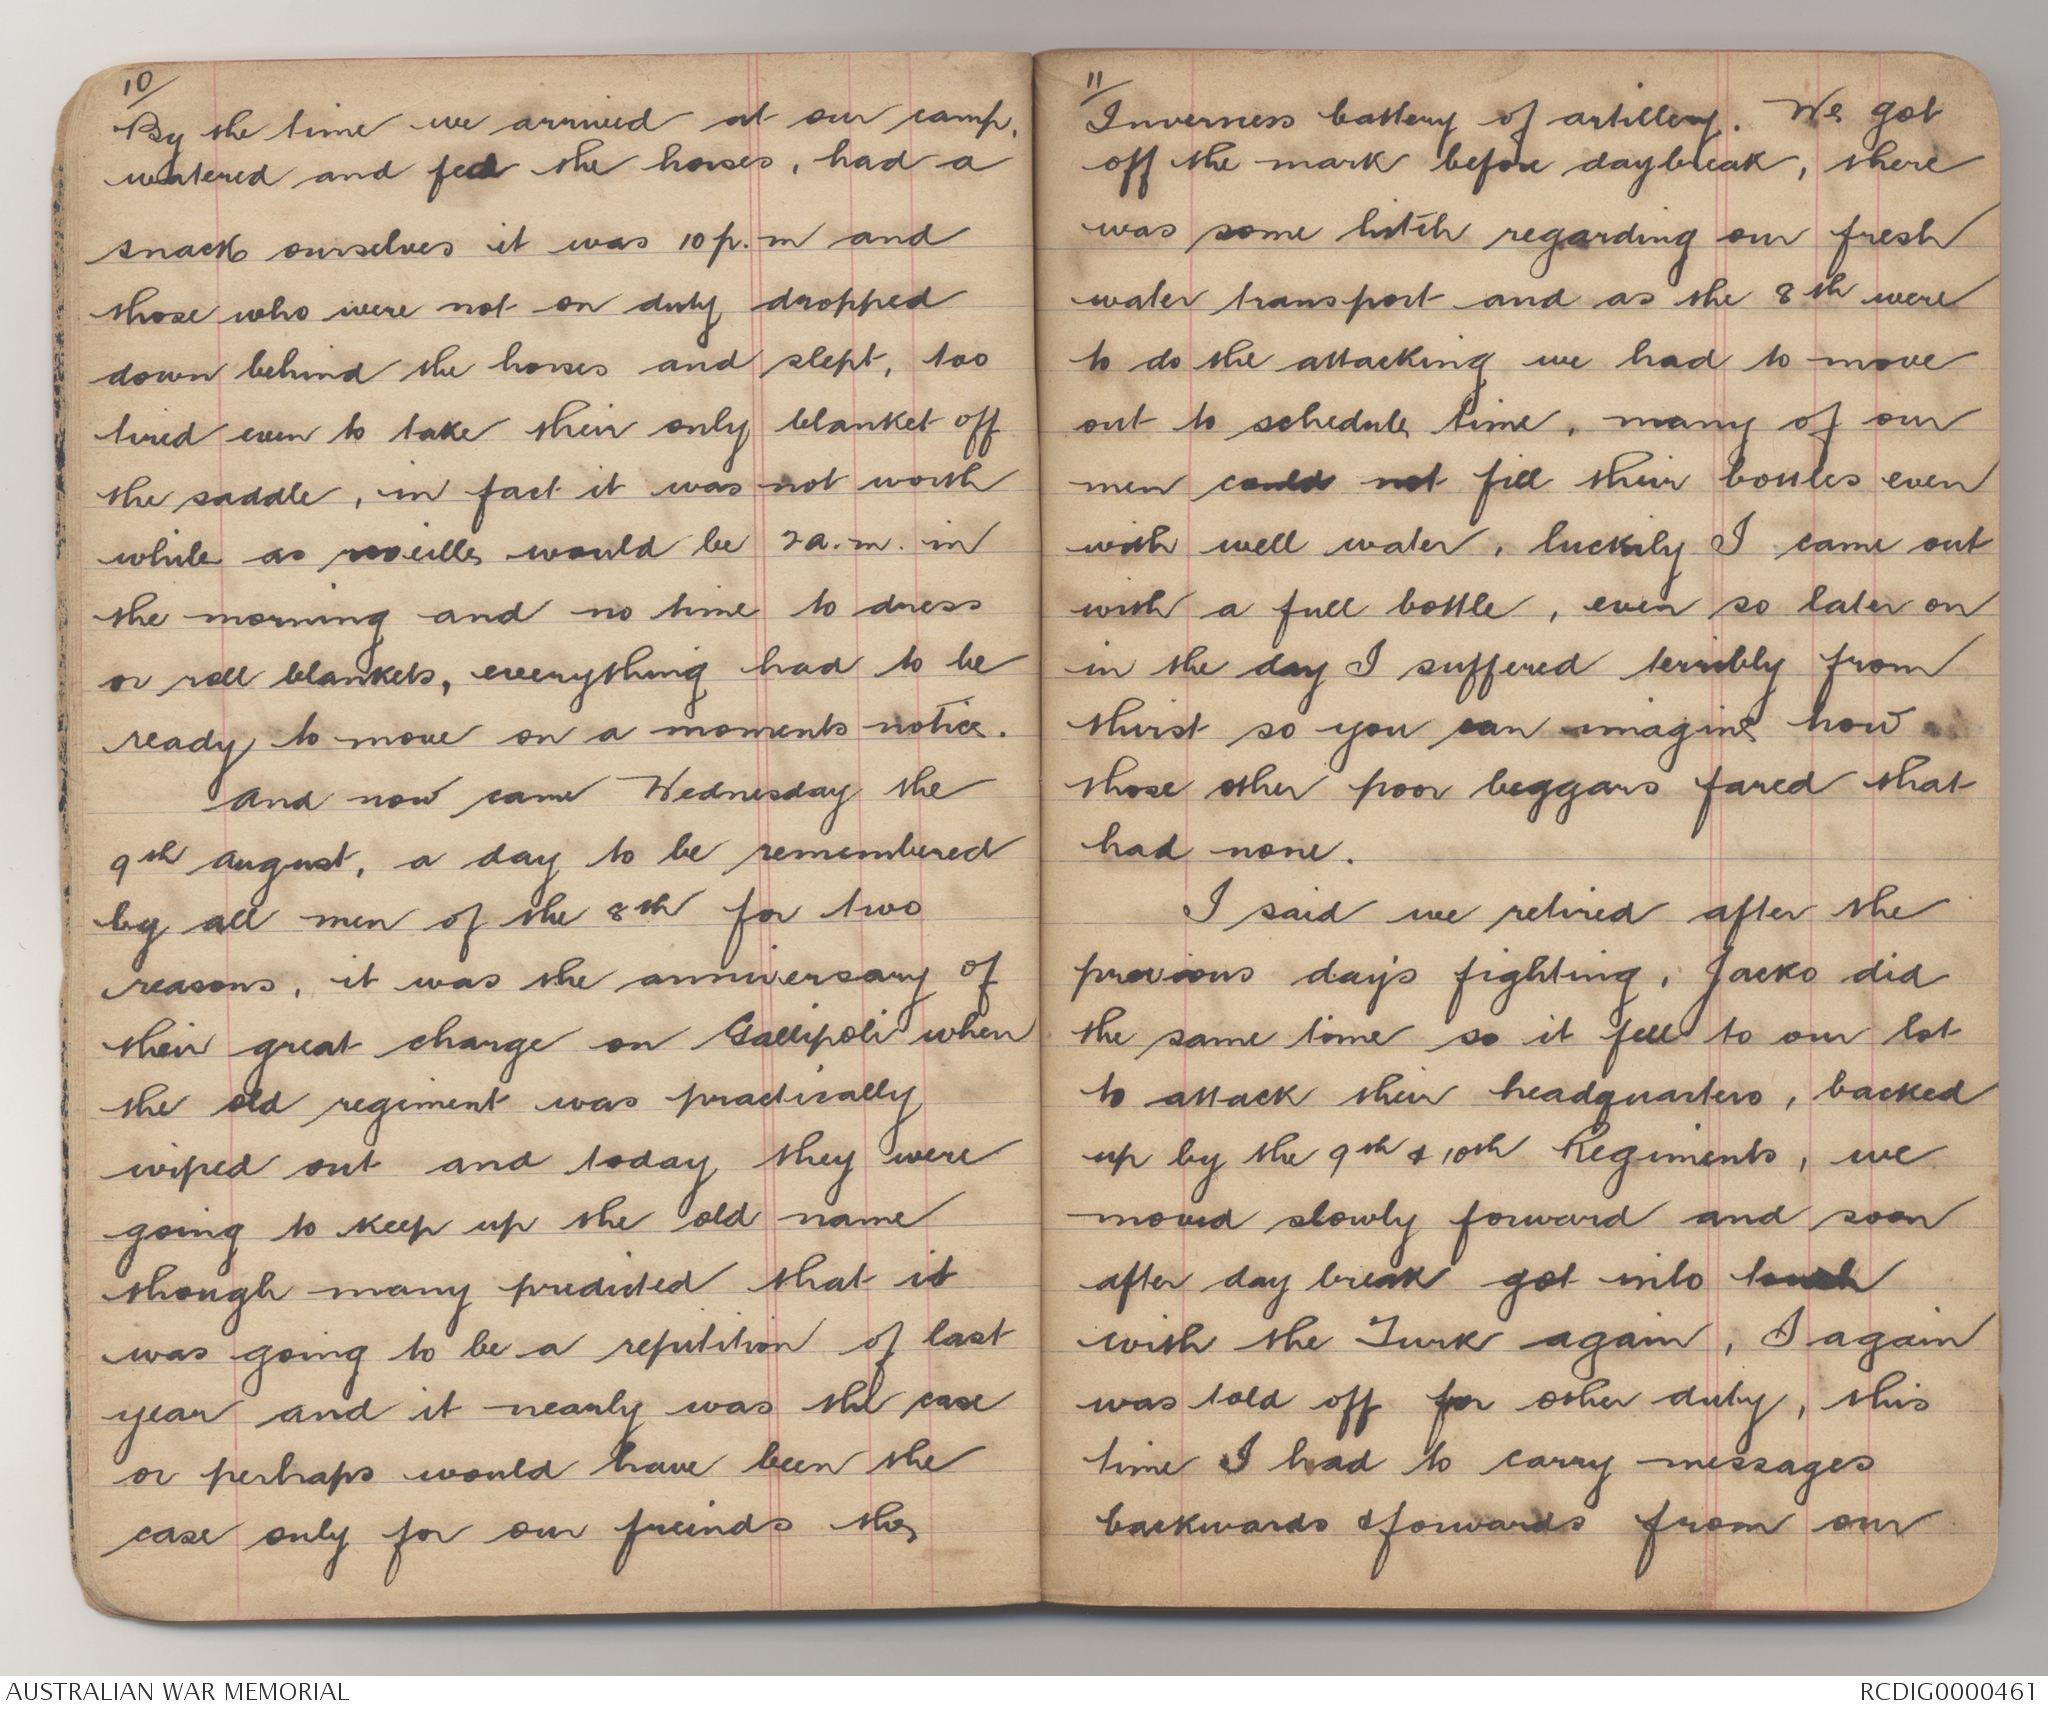 10/
By the time we arrived at our camp,
watered and fed the horses, had a
snack ourselves it was 10 p.m and
those who were not on duty dropped
down behind the horses and slept, too
tired even to take their only blanket off
the saddle, in fact it was not worth
while as reveille would be 2 a.m. in
the morning and no time to dress
or roll blankets, everything had to be
ready to move on a moments notice.
And now came Wednesday the
9th August, a day to be remembered
by all men of the 8th for two
reasons, it was the anniversary of
their great charge on Gallipoli when
the old regiment was practically
wiped out and today they were
going to keep up the old name
though many predicted that it
was going to be a repitition of last
year and it nearly was the case
or perhaps would have been the
case only for our freinds the
11/
Inverness battery of artillery. We got
off the mark before daybreak, there
was some hitch regarding our fresh
water transport and as the 8th were
to do the attacking we had to move
out to schedule time, many of our
men could not fill their bottles even
with well water, luckily I came out
with a full bottle, even so later on
in the day I suffered terribly from
thirst so you can imagine how
those other poor beggars fared that
had none.
I said we retired after the
previous day's fighting, Jacko did
the same time so it fell to our lot
to attack their headquarters, backed
up by the 9th & 10th Regiments, we
moved slowly forward and soon
after day break got into touch
with the Turk again, I again
was told off for other duty, this
time I had to carry messages
backwards & forwards from our
AUSTRALIAN WAR MEMORIAL
RCDIG0000461